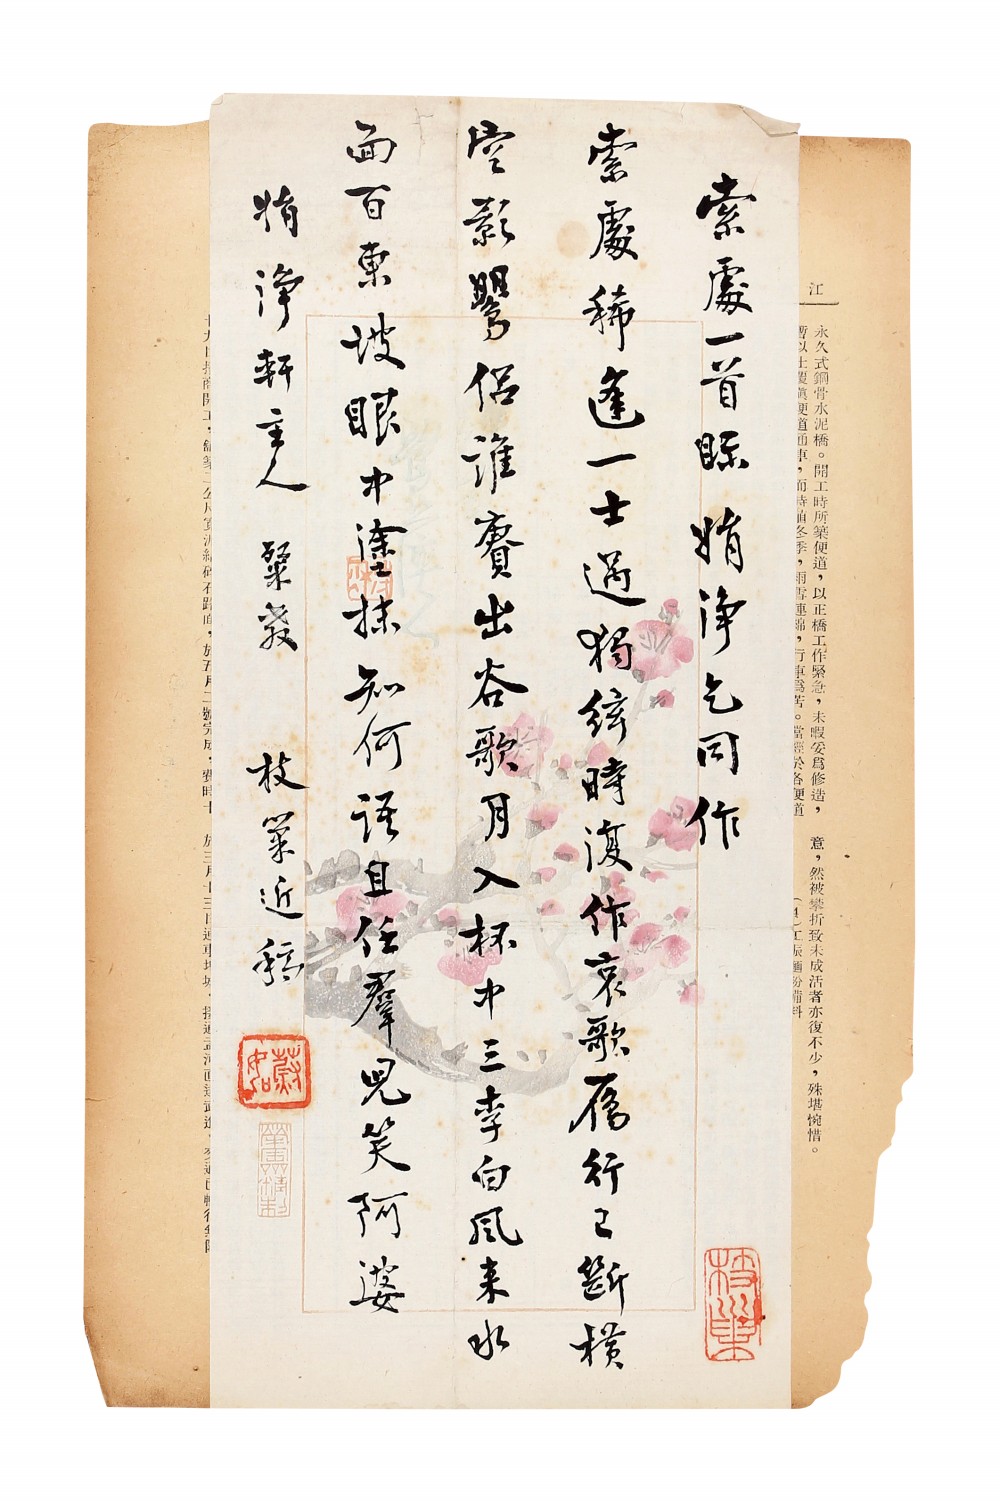 索處一首賕 婧淨乞同作
索處稀逢一士過獨絃時復作哀歌雁行已斷橫
空影鸎侶誰賡出谷歌月入杯中三李白風来水
面百東坡眼中塗抹知何語且任羣兒笑阿婆
婧淨軒主人 粲教 枝巢近稿
蔚如
枝巢
江
永久式鋼骨水泥橋。開工時所築便道，以正橋工作緊急，未暇妥爲修造，
暫以土覆蓋便道通車，而時值冬季，雨雪連綿，行車爲苦。當經於各便道
意，然被攀折致未成活者亦復不少，殊堪惋惜。